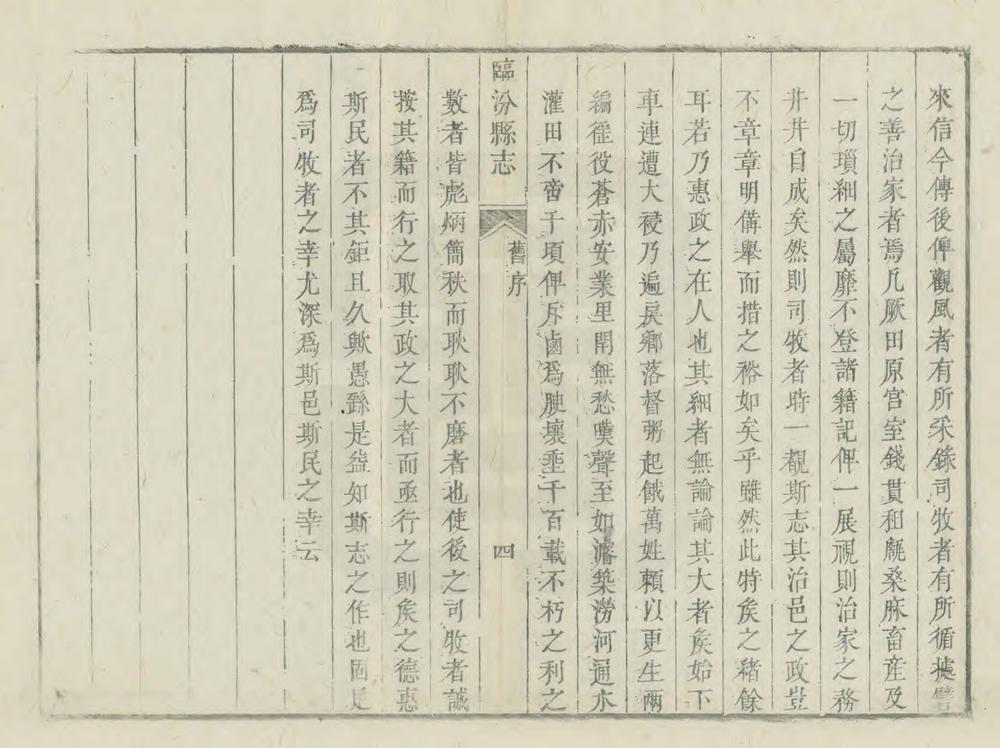 來信今傳後俾觀風者有所采錄司牧者有所循據譬
之善治家者焉凡厥田原宫室錢貫租麄桑麻畜産及
一切瑣細之屬靡不登諸籍記俾一展視則治家之務
井井自成矣然則司牧者時一覩斯志其治邑之政豈
不章章明備舉而措之裕如矣乎雖然此特矦之緒餘
耳若乃惠政之在人也其細者無論論其大者矦始下
車連遭大祲乃遍戾鄉落督粥起餓萬姓賴以更生兩
編徭役蒼赤安業里閈無愁嘆聲至如濬築澇河通水
灌田不啻千頃俾斥鹵爲腴壤埀千百載不朽之利之
臨汾縣志
舊序
四
數者皆彪炳簡秩而耿耿不磨者也使後之司牧者誠
按其籍而行之取其政之大者而亟行之則矦之德惠
斯民者不其鉅且久歟愚繇是益知斯志之作也固足
爲司牧者之幸尤深爲斯邑斯民之幸云